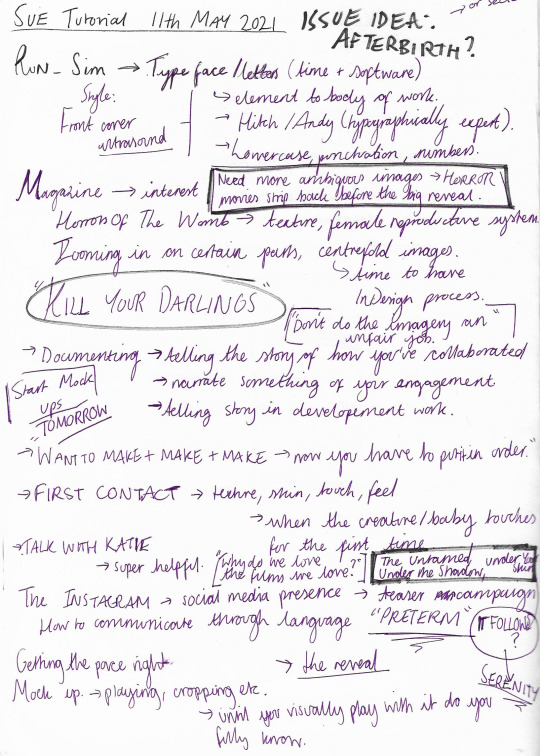 → or
SUE Tutorial 11th MAY 2021
ISSUE IDEA:
AFTERBIRTH?
RUN_Sim → Typeface/letters (time + software)
Style:
Front cover
ultrasound
↳ element to body of work.
→ Hitch/Andy (typographically expert).
↳ Lowercase, punctuation, numbers.
Magazine → interest
Need more ambiguous images → HORROR
movies strip back before the big reveal.
Horrors Of The Womb → texture, female reproductive system
Zooming in on certain parts, centrefold images.
↳ time to have
InDesign process.
"KILL YOUR DARLINGS"
["Don't do the imagery an"
unfair job.
→ Documenting → telling the story of how you've collaborated
→ narrate something of your engagement
→ telling story in developement work.
Start Mock
ups
"TOMORROW"
→ WANT TO MAKE + MAKE + MAKE → now you have to put in order."
→ FIRST CONTACT → texture, skin, touch, feel
→ when the creature/baby touches
for the first time
→ TALK WITH KATIE
→ super helpful.
["Why do we love
the films we love?"]
The Untamed, under your skin
Under the Shadow,
The INSTAGRAM → social media presence → teaser campaign
How to communicate through language
"PRETERM"
IT FOLLOWS
?
SERENITY
Getting the pace right
→ the reveal
Mock up. → playing, cropping etc.
→ until you visually play with it do you
fully know.